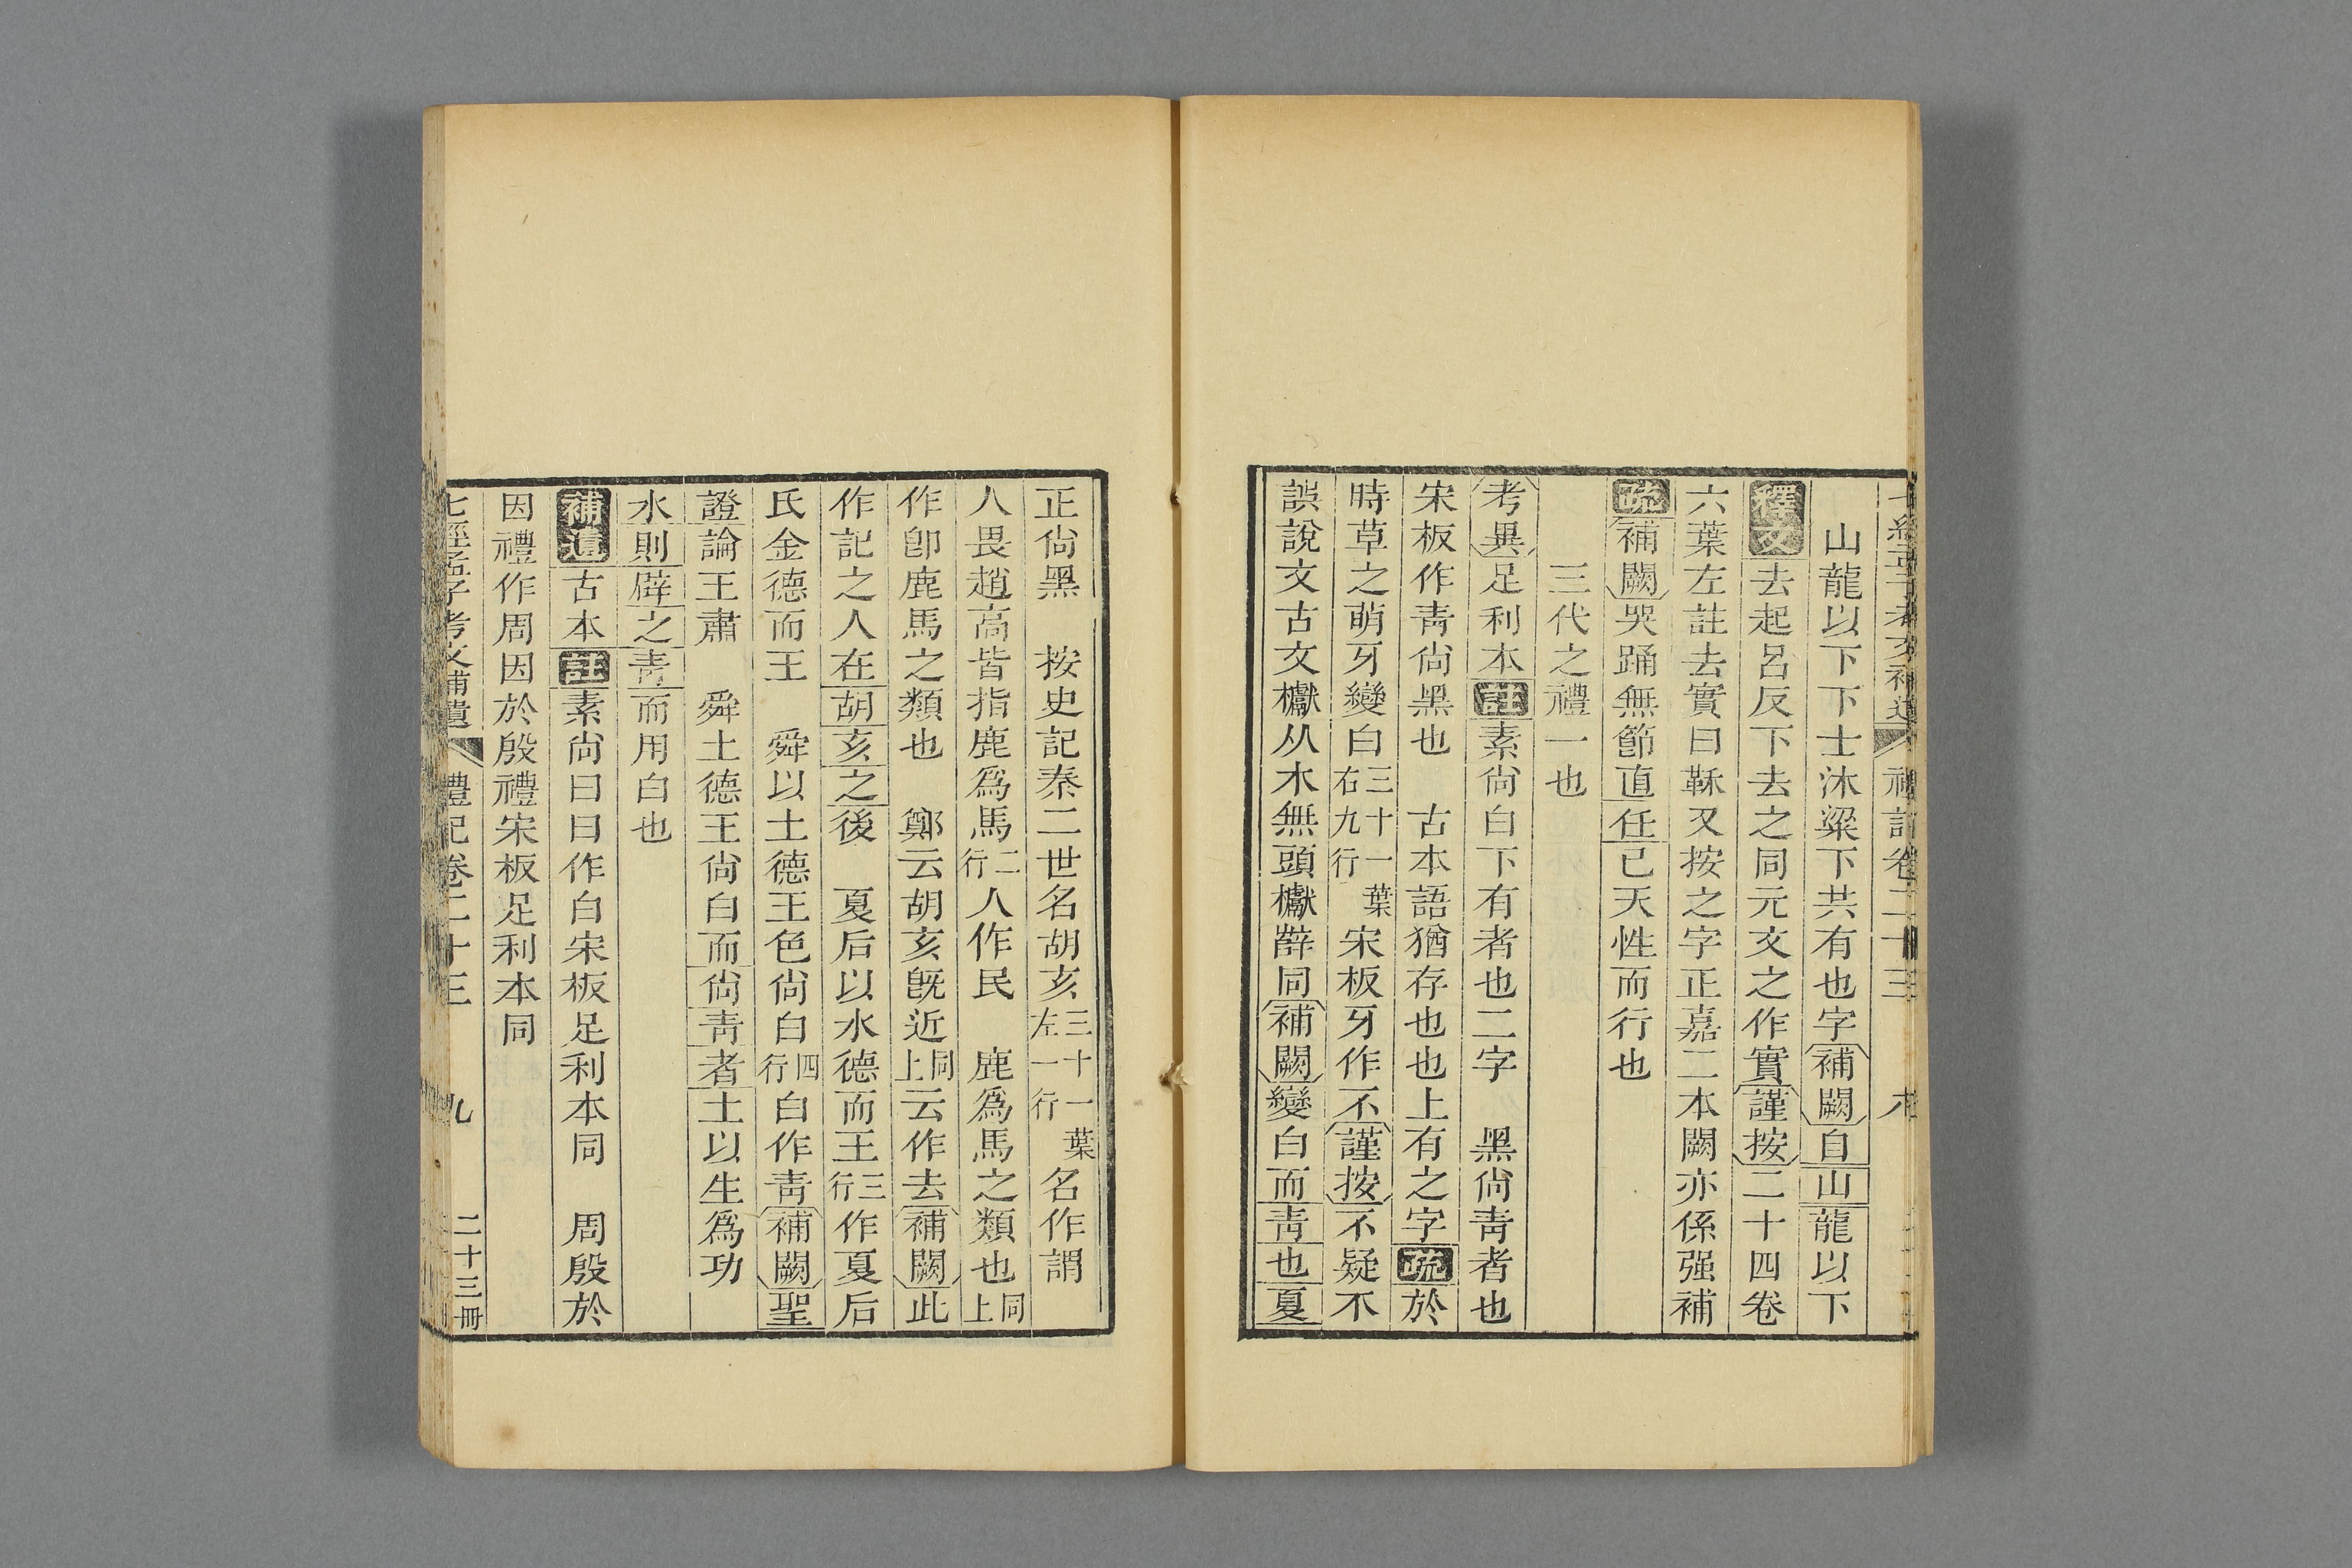 山龍以下下士沐粱下共有也字補闕自山龍以下
釋文去起呂反下去之同元文之作實謹按二十四卷
六葉左註去實曰靺又按之字正嘉二本闕亦係强補
疏補闕哭踊無節直任己天性而行也
三代之禮一也
考異足利本註素尙白下有者也二字 黑尙靑者也
宋板作靑尙黑也 古本語猶存也也上有之字疏於
時草之萌牙變白三十一葉右九行宋板牙作不謹按不疑不
誤說文古文㰎从木無頭㰎辥同補闕變白而靑也夏
正尙黑 按史記秦二世名胡亥三十一葉左一行名作謂
人畏趙高皆指鹿爲馬二行人作民 鹿爲馬之類也同上
作卽鹿馬之類也 鄭云胡亥旣近同上云作去補闕此
作記之人在胡亥之後 夏后以水德而王三行作夏后
氏金德而王 舜以土德王色尙白四行白作靑補闕聖
證論王肅 舜土德王尙白而尙靑者土以生爲功
水則辟之靑而用白也
補遺古本註素尙曰曰作白宋板足利本同 周殷於
因禮作周因於殷禮宋板足利本同
七經孟子考文補遺 禮記卷二十三 九 二十三冊